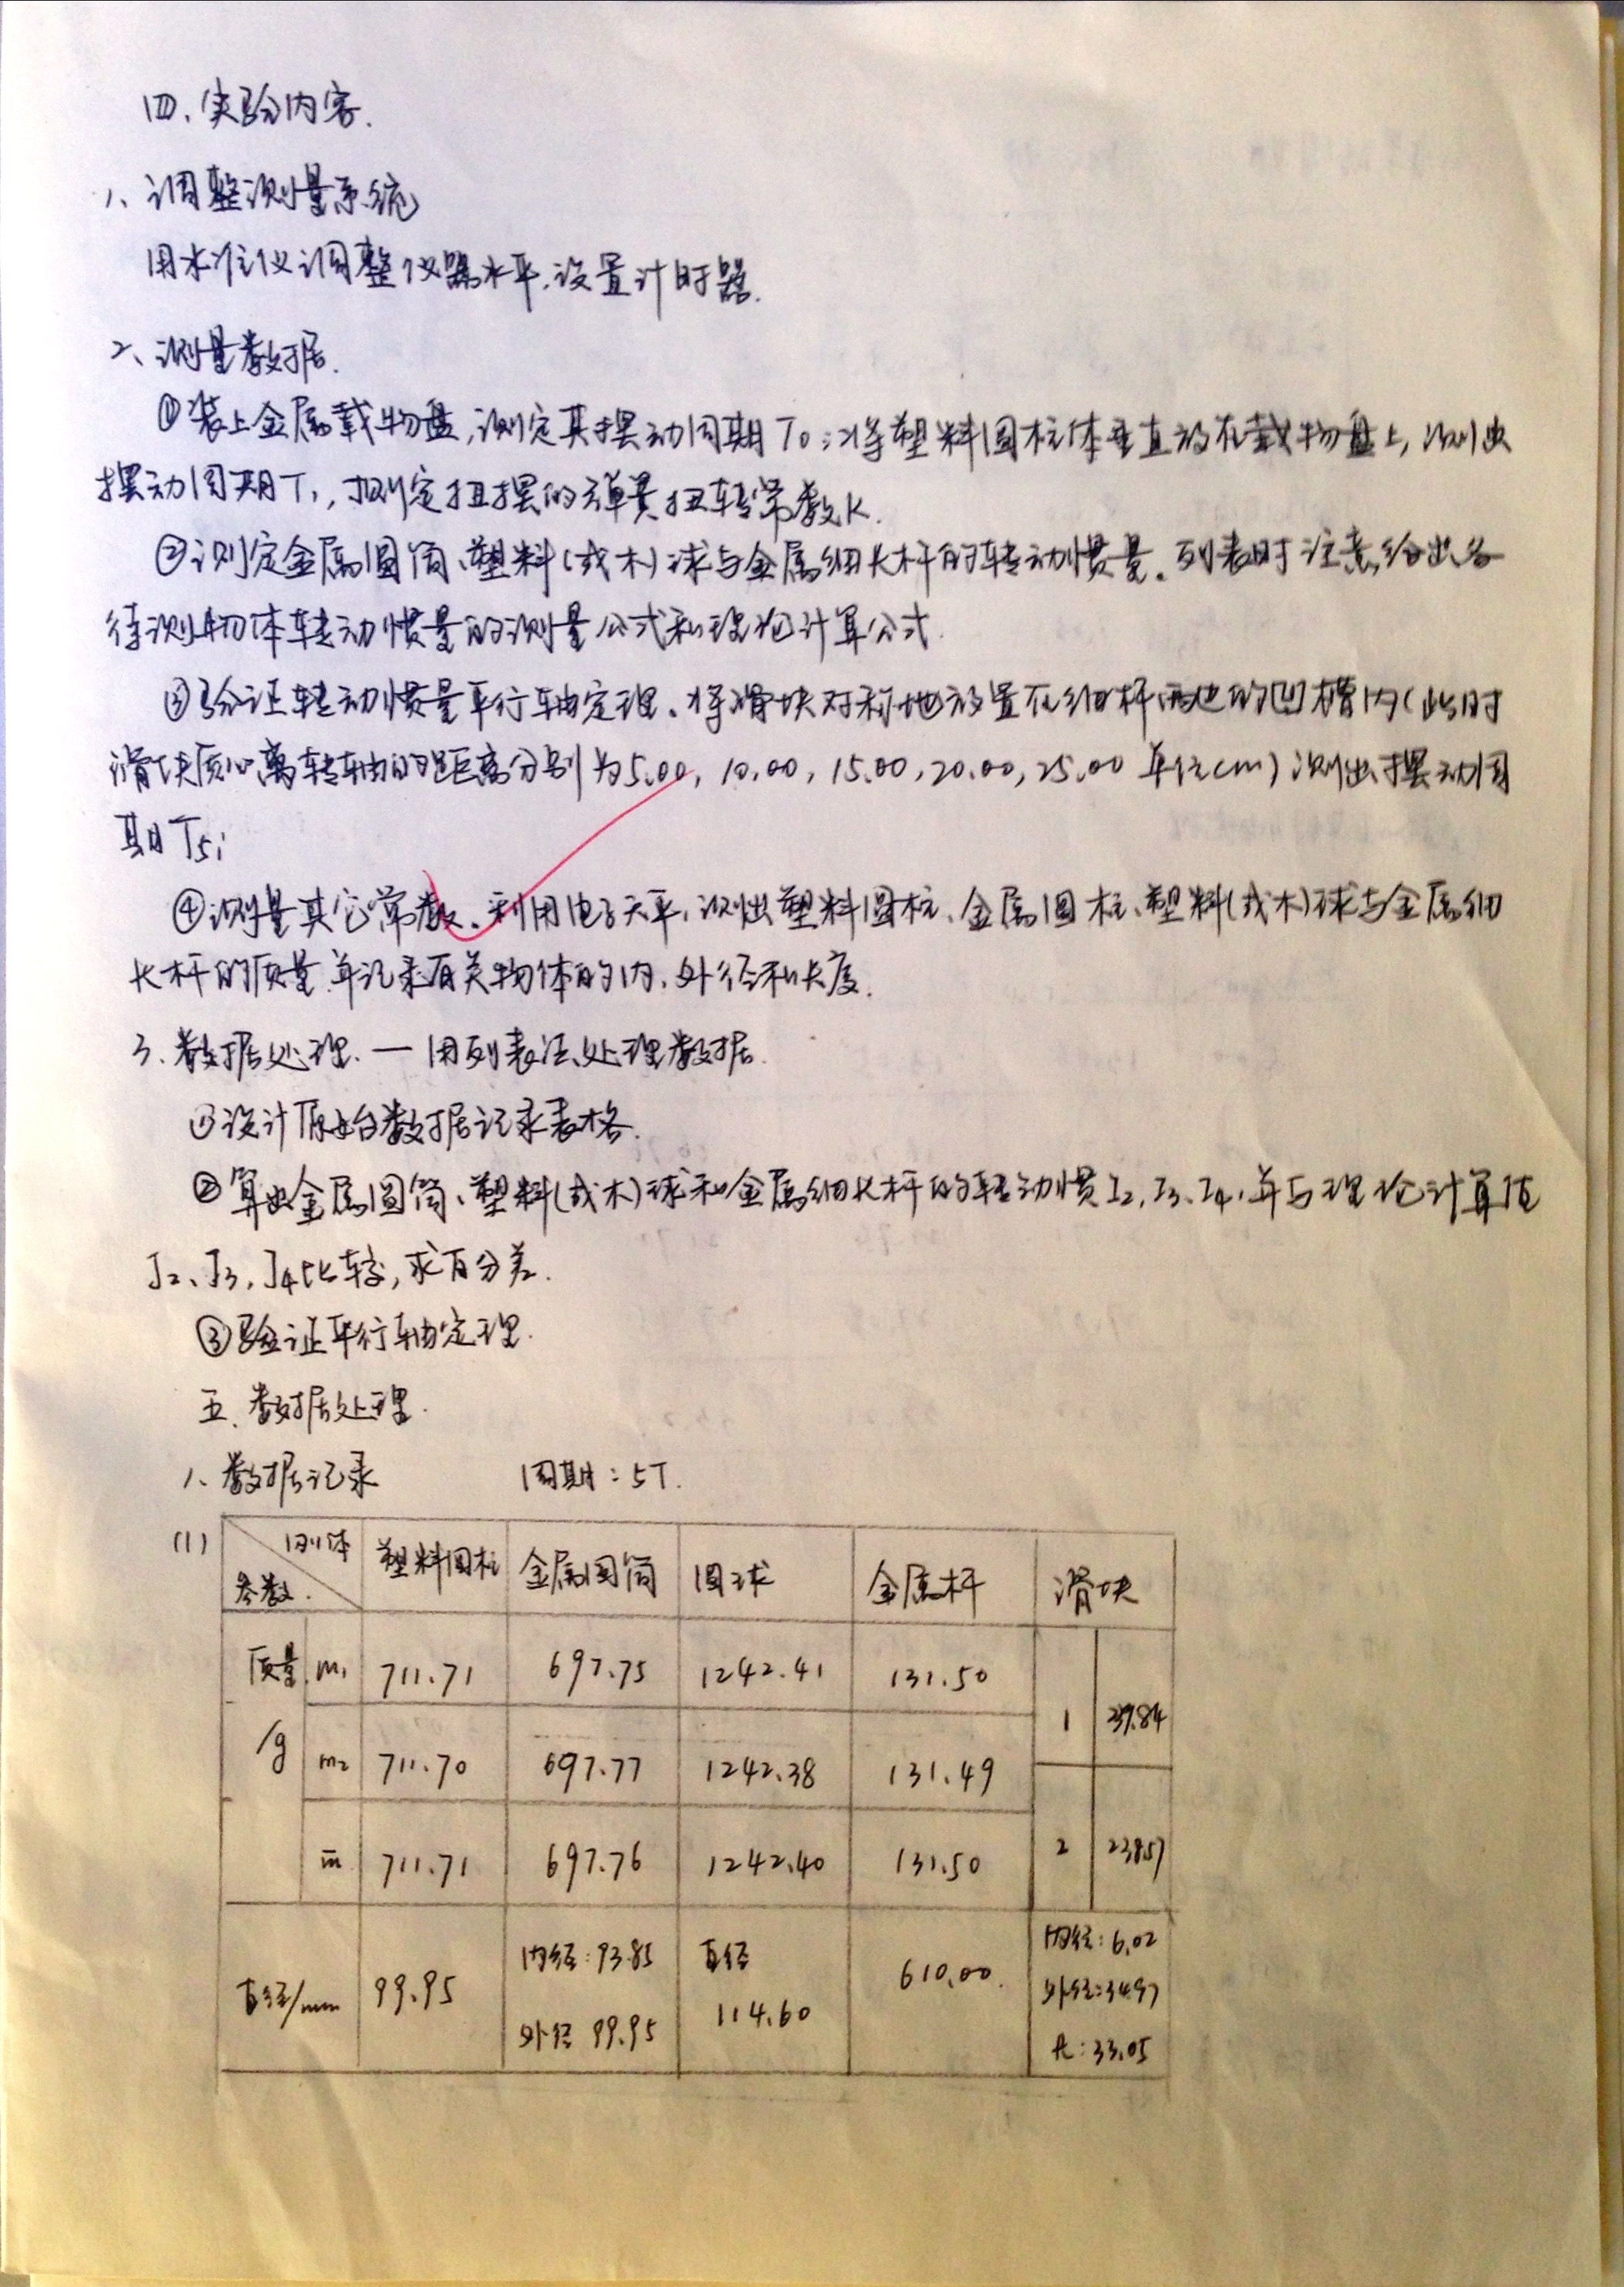 四、实验内容.
1、调整测量系统
用水准仪调整仪器水平,设置计时器.
2、测量数据.
①装上金属载物盘,测定其摆动周期T0;将塑料圆柱体垂直放在载物盘上,测出
摆动周期T1,测定扭摆的弹簧扭转常数K.
②测定金属圆筒、塑料(或木)球与金属细长杆的转动惯量。列表时注意给出各
待测物体转动惯量的测量公式和理论计算公式.
③验证转动惯量平行轴定理。将滑块对称地放置在细杆两边的凹槽内(此时
滑块质心离转轴的距离分别为5.00, 10.00, 15.00, 20.00, 25.00 单位cm)测出摆动周
期T5i
④测量其它常数、利用电子天平,测出塑料圆柱、金属圆柱、塑料(或木)球与金属细
长杆的质量,并记录有关物体的内、外径和长度.
3、数据处理. — 用列表法处理数据.
①设计原始数据记录表格.
②算出金属圆筒、塑料(或木)球和金属细长杆的转动惯J2,J3,J4,并与理论计算值
J2、J3,J4比较,求百分差.
③验证平行轴定理.
五、数据处理.
1、数据记录 周期:5T.
(1) 刚体 参数. 塑料圆柱 金属圆筒 圆球 金属杆 滑块
质量 m1 711.71 697.75 1242.41 131.50
1 239.84
/g m2 711.70 697.77 1242.38 131.49
m̄ 711.71 697.76 1242.40 131.50 2 238.57
直径/mm 99.95 内径:93.85 直径 610.00. 内径:6.02
外径 99.95 114.60 外径:34.97
长:33.05